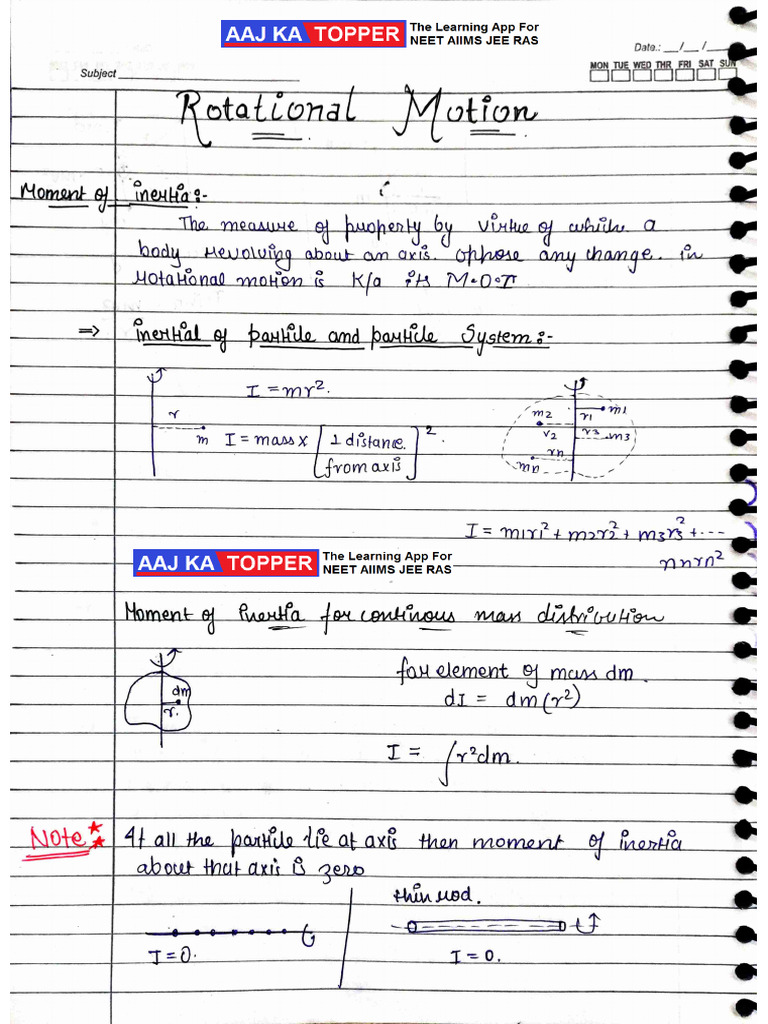 AAJ KA TOPPER The Learning App For
NEET AIIMS JEE RAS
Date.: __/__/__
MON TUE WED THR FRI SAT SUN
Subject
Rotational Motion
Moment of inertia:-
The measure of property by virtue of which a
body revolving about an axis. oppose any change. in
rotational motion is K/a its M.O.I
⇒ inertial of partile and partile System:-
I = mr².
r
m
I = mass x [⊥ distance from axis]²
m1
r1
m2
r2
r3
m3
rn
mn
I = m1r1² + m2r2² + m3r3² + ....
mnrn²
AAJ KA TOPPER The Learning App For
NEET AIIMS JEE RAS
Moment of inertia for continous mass distribution
dm
r.
for element of mass dm.
dI = dm(r²)
I = ∫r²dm.
Note
If all the partile lie at axis then moment of inertia
about that axis is zero
thin rod.
I = 0.
I = 0.